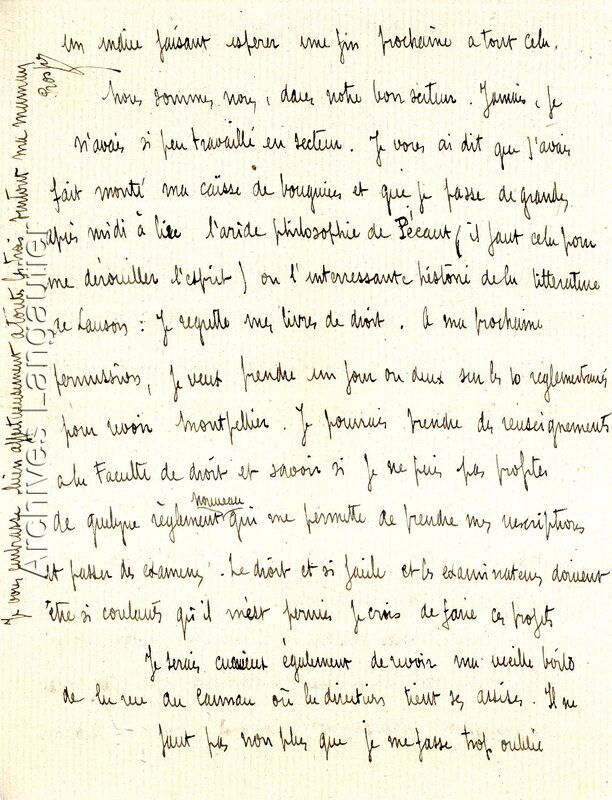 un indice faisant espérer une fin prochaine a tout cela.
Nous sommes nous, dans notre bon secteur. Jamais, je
n'avais si peu travaillé en secteur. Je vous ai dit que j'avais
fait monté ma caisse de bouquins et que je passe de grandes
après midi à lire l'aride philosophie de Pécaut (il faut cela pour
me dérouiller l'esprit) ou l'interressante histoire de la litterature
de Lanson : Je regrette mes livres de droit. A ma prochaine
permission, je veux prendre un jour ou deux sur les 10 reglementaires
pour revoir Montpellier. Je pourrais prendre des renseignements
a la Faculté de droit et savoir si je ne puis pas profiter
de quelque règlement nouveau qui me permette de prendre mes inscriptions
et passer des examens. Le droit et si facile et les examinateurs doivent
être si coulants qu'il m'est permis je crois de faire ces projets
Je serais également de revoir ma vieille boîte
de la rue du où la direction tient ses assises. Il ne
faut pas non plus que je me fasse trop oublié
Je vous embrasse bien affectueusement a tous trois surtout ma
Archives Langautier